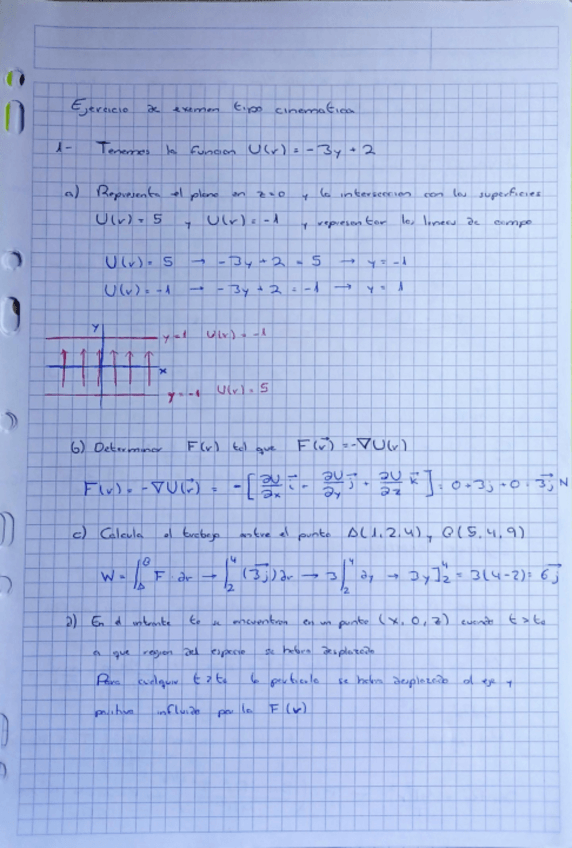 Ejercicio de examen tipo cinematica
1- Tenemos la funcion U(r) = -3y + 2
a) Representa el plano en z=0 y la interseccion con las superficies
U(r) = 5 y U(r) = -1 y representar las lineas de campo
U(r) = 5 → -3y + 2 = 5 → y = -1
U(r) = -1 → -3y + 2 = -1 → y = 1
y
y=1 U(r) = -1
x
y=-1 U(r) = 5
b) Determinar F(r) tal que F(r⃗) = -∇U(r)
F(r) = -∇U(r⃗) = -[∂U/∂x i⃗ - ∂U/∂y j⃗ + ∂U/∂z k⃗] = 0+3j+0 = 3j⃗ N
c) Calcula el trabajo entre el punto A(1,2,4) y Q(5,4,9)
W = ∫_A^Q F · dr → ∫_2^4 (3j⃗) dr → 3∫_2^4 dy → 3y]_2^4 = 3(4-2) = 6j⃗
d) En el instante t₀ se encuentra en un punto (x, 0, z) cuando t > t₀
a que region del espacio se habra desplazado
Para cualquier t > t₀ la particula se habra desplazado al eje y
positivo influido por la F(r)